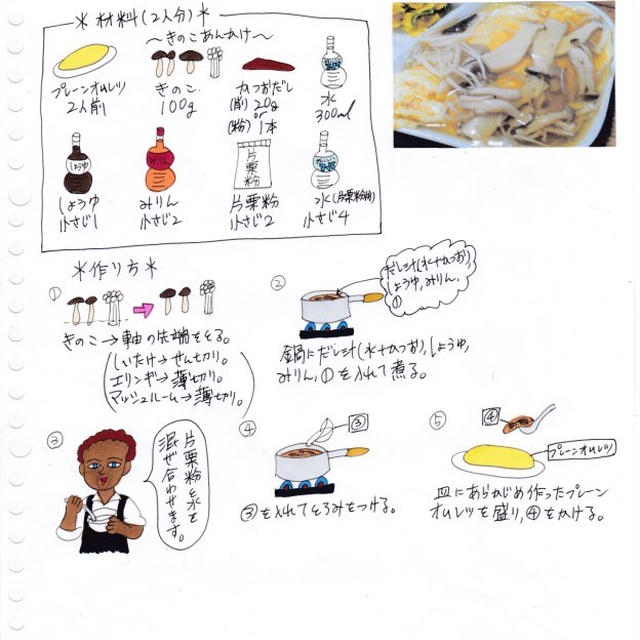 *材料(2人分)*
~きのこあんかけ~
プレーンオムレツ
2人前
きのこ
100g
かつおだし
(削)20g
or
(粉)1本
水
300ml
しょうゆ
しょうゆ
小さじ1
みりん
みりん
小さじ2
片栗粉
片栗粉
小さじ2
水(片栗粉用)
小さじ4
*作り方*
①
きのこ→軸の先端をとる。
(しいたけ→せん切り。
エリンギ→薄切り。
マッシュルーム→薄切り。)
②
だし汁(水+かつお),
しょうゆ,みりん,
①
鍋にだし汁(水+かつお),しょうゆ,
みりん,①を入れて煮る。
③
片栗粉と水を
混ぜ合わせます。
④
③
③を入れてとろみをつける。
⑤
④
プレーンオムレツ
皿にあらかじめ作ったプレーン
オムレツを盛り,④をかける。